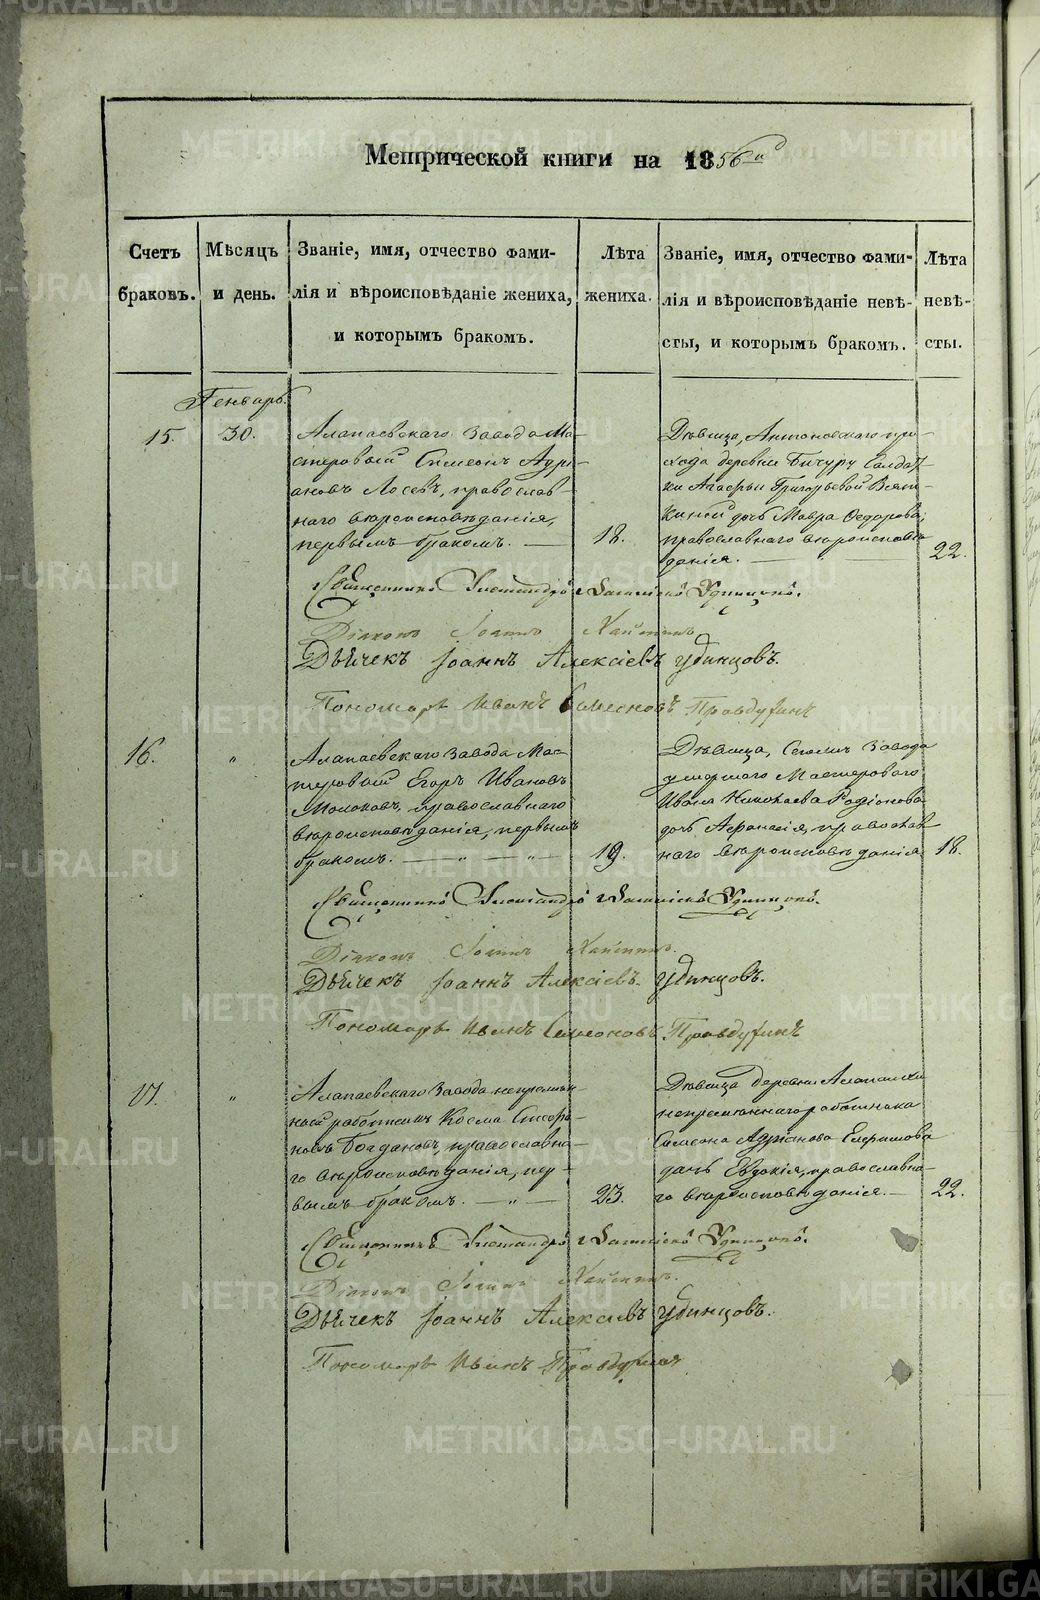 Метрической книги на 1856й
Счетъ браковъ.
Мѣсяцъ и день.
Званіе, имя, отчество фами-
лія и вѣроисповѣданіе жениха,
и которымъ бракомъ.
Лѣта жениха.
Званіе, имя, отчество фами-
лія и вѣроисповѣданіе невѣ-
сты, и которымъ бракомъ.
Лѣта невѣ-
сты.
Генварь.
15.
30.
Алапаевскаго завода Ма-
стеровый Симеонъ Адрі-
ановъ Лосевъ, православ-
наго вѣроисповѣданія,
первымъ бракомъ.
18.
Дѣвица, Антоновскаго при-
хода деревни Бичуру Солдат-
ки Агафьи Григорьевой
дочь Мавра Ѳедорова,
православнаго вѣроисповѣ-
данія.
22.
Священникъ Александръ Удинцовъ.
Діаконъ Іоаннъ
Дьячекъ Іоаннъ Алексіевъ Удинцовъ.
Пономарь Иванъ Симеоновъ Правдухинъ
16.
"
Алапаевскаго завода Мас-
теровый Егоръ Ивановъ
Молоковъ, православнаго
вѣроисповѣданія, первымъ
бракомъ. — " — " —
19.
Дѣвица, Сегожъ завода
умершаго Мастероваго
Ивана Николаева Родіонова
дочь Афанасія, православ-
наго вѣроисповѣданія
18.
Священникъ Александръ Удинцовъ.
Діаконъ Іоаннъ
Дьячекъ Іоаннъ Алексіевъ Удинцовъ.
Пономарь Иванъ Симеоновъ Правдухинъ
17.
"
Алапаевскаго завода непремѣн-
ный работникъ Косма Стефа-
новъ Богдановъ, православна-
го вѣроисповѣданія, пер-
вымъ бракомъ. — " —
23.
Дѣвица деревни Алапаихи
непремѣннаго работника
Симеона Адріанова Ефимова
дочь Евдокія, православна-
го вѣроисповѣданія. —
22.
Священникъ Александръ Удинцовъ.
Діаконъ Іоаннъ
Дьячекъ Іоаннъ Алексіевъ Удинцовъ.
Пономарь Иванъ Правдухинъ
METRIKI.GASO-URAL.RU